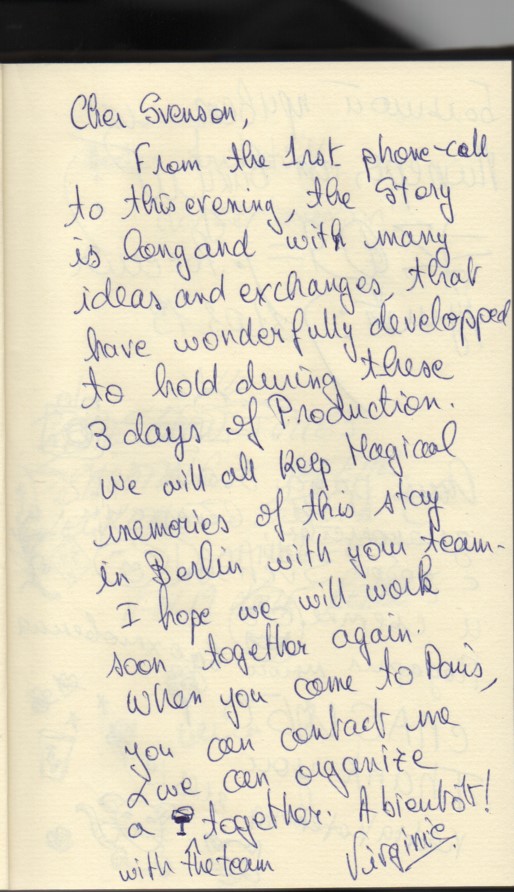 Cher Svenson,
From the 1rst phone-call
to this evening, the story
is long and with many
ideas and exchanges, that
have wonderfully developped
to hold during these
3 days of Production.
We will all keep Magical
memories of this stay
in Berlin with your team.
I hope we will work
soon together again.
When you come to Paris,
you can contact me
& we can organize
a together. A bientôt!
with the team Virginie.